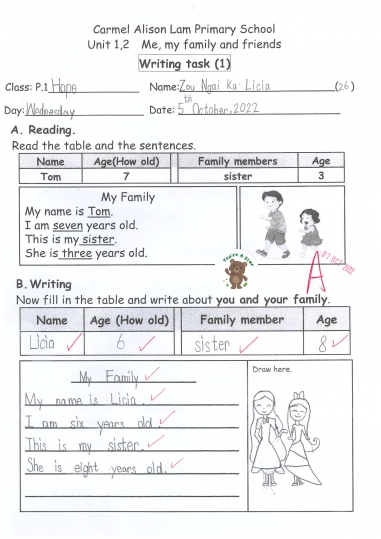 Carmel Alison Lam Primary School
Unit 1,2 Me, my family and friends
Writing task (1)
Class: P.1 Hope Name: Zou Ngai Ka Licia (26)
Day: Wednesday Date: 5th October, 2022
A. Reading.
Read the table and the sentences.
Name Age(How old) Family members Age
Tom 7 sister 3
My Family
My name is Tom.
I am seven years old.
This is my sister.
She is three years old.
You're A Star
A
07 OCT 2022
B. Writing
Now fill in the table and write about you and your family.
Name Age (How old) Family member Age
Licia 6 sister 8
My Family
My name is Licia.
I am six years old.
This is my sister.
She is eight years old.
Draw here.